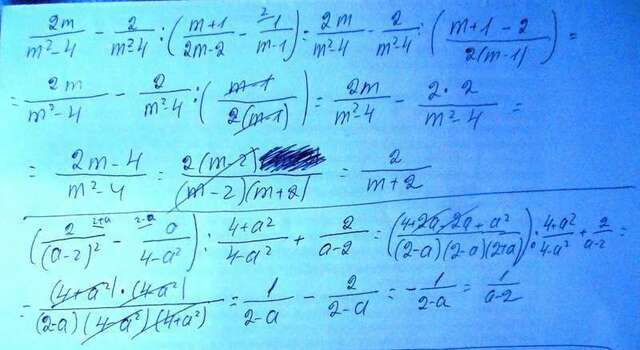 2m/(m²-4) - 2/(m²-4) : ((m+1)/(2m-2) - ²1/(m-1)) = 2m/(m²-4) - 2/(m²-4) : ((m+1-2)/(2(m-1))) =
= 2m/(m²-4) - 2/(m²-4) : ((m-1)/(2(m-1))) = 2m/(m²-4) - (2·2)/(m²-4) =
= (2m-4)/(m²-4) = 2(m-2)/((m-2)(m+2)) = 2/(m+2)
(2/(a-2)² ²⁺ᵃ - ²⁻ᵃ a/(4-a²)) : (4+a²)/(4-a²) + 2/(a-2) = ((4+2a-2a+a²)/((2-a)(2-a)(2+a))) : (4+a²)/(4-a²) + 2/(a-2) =
= ((4+a²)·(4-a²))/((2-a)(4-a²)(4+a²)) = 1/(2-a) - 2/(2-a) = -1/(2-a) = 1/(a-2)